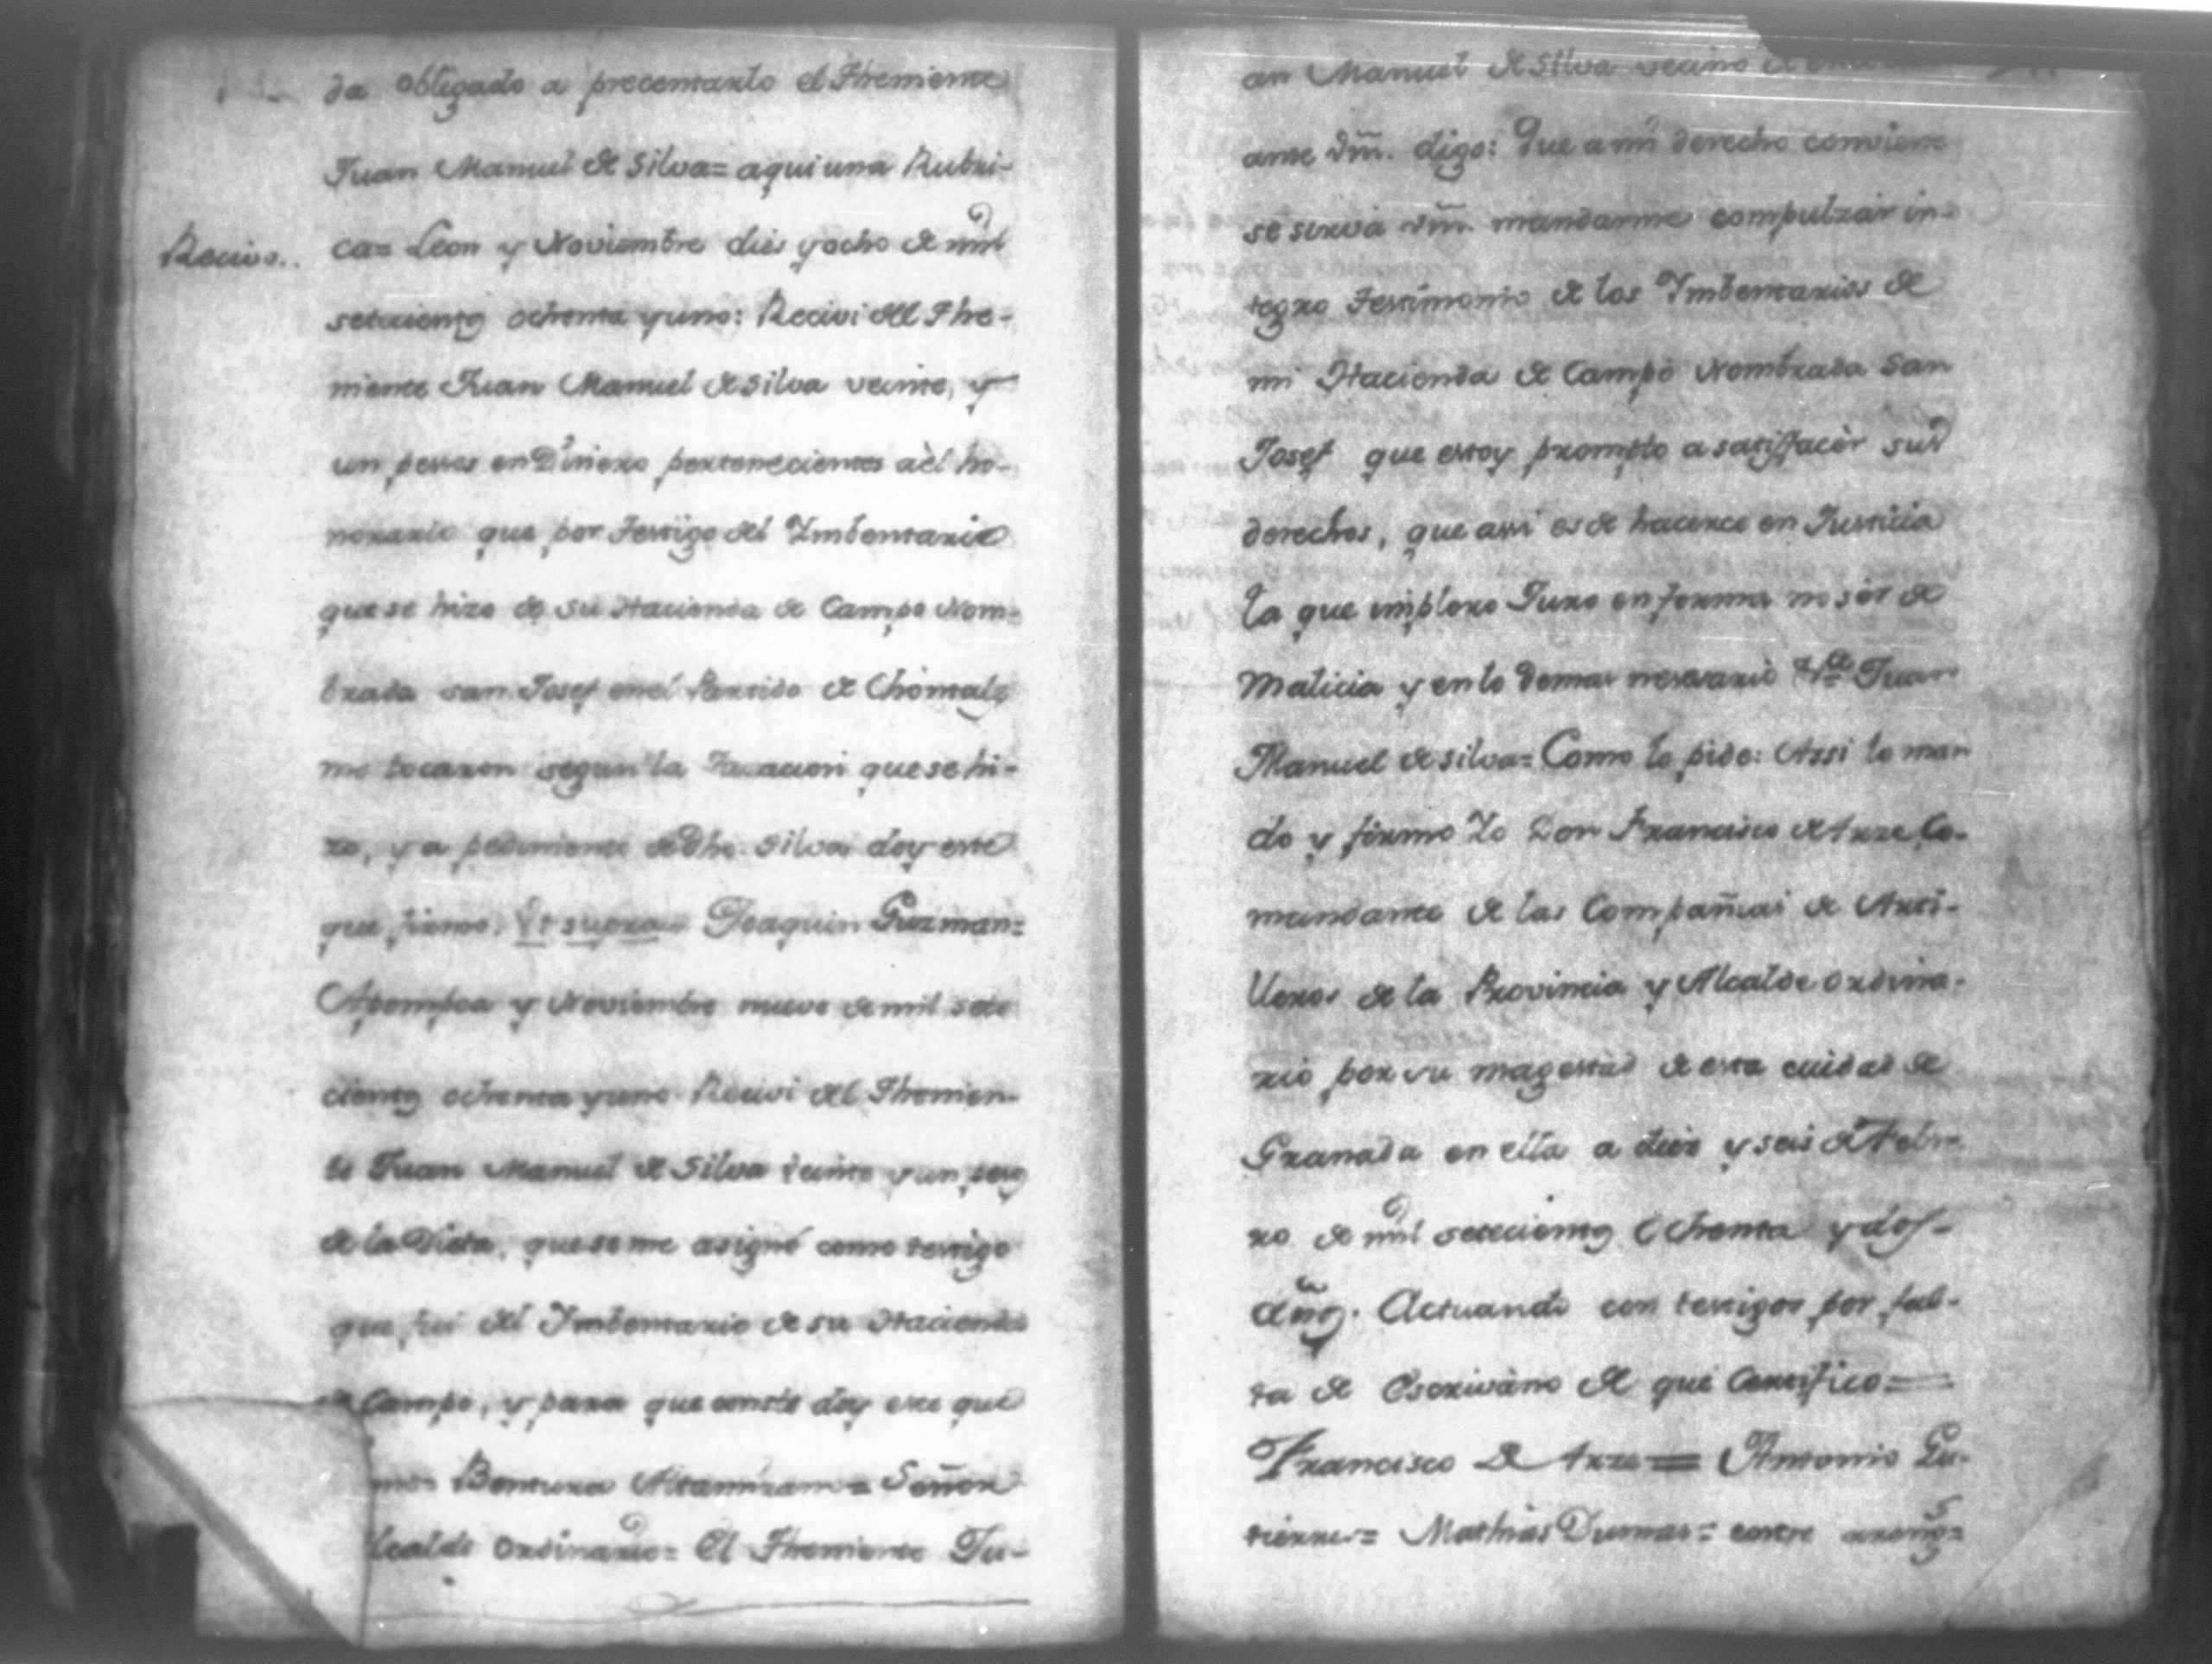 da obligado a precentarlo el Theniente
Juan Manuel de Silva= aqui una Rubri-
Recivo..
ca= Leon y Noviembre dies y ocho de mil
setecientos ochenta y uno: Recivi del The-
niente Juan Manuel de Silva veinte, y
un pessos en Dinero pertenecientes aèl ho-
norario que por Testigo del Imbentario
que se hizo de su Hacienda de Campo Nom-
brada san Josef en el Partido de Chontales
me tocaron segun la Tasacion que se hi-
zo, y a pedimento de Dho. Silva doy este
que firmo. Ut supra= Joaquin Guzman=
Apompoa y Noviembre nueve de mil sete
cientos ochenta y uno Recivi del Thenien-
te Juan Manuel de Silva veinte y un pesos
de la Dieta, que se me asignó como testigo
que fui del Imbentario de su Hacienda
de Campo, y para que conste doy este que
Bentura Altamirano= Señor
lcalde ordinario= El Theniente Ju-
an Manuel de Silva vecino de
ante Vm. digo: Que a mi derecho conviene
se sirva Vm. mandarme compulzar in-
tegro Testimonio de los Imbentarios de
mi Hacienda de Campo Nombrada San
Josef que estoy prompto a satisfacèr sus
derechos, que assi es de hacerce en Justicia
la que imploro Juro en forma no sèr de
Malicia y en lo demas nesesario &a Juan
Manuel de Silva= Como lo pide: Assi lo man
do y firmo Yo Don Francisco de Arze, Co-
mandante de las Compañias de Arti-
lleros de la Provincia y Alcalde ordina-
rio por su magestad de esta ciudad de
Granada en ella a diez y seis de Febre
ro de mil setecientos ochenta y dos-
años. Actuando con testigos por fal-
ta de Escrivàno de que Certifico=
Francisco De Arze= Antonio Gu-
tierres= Mathias Dumas= entre